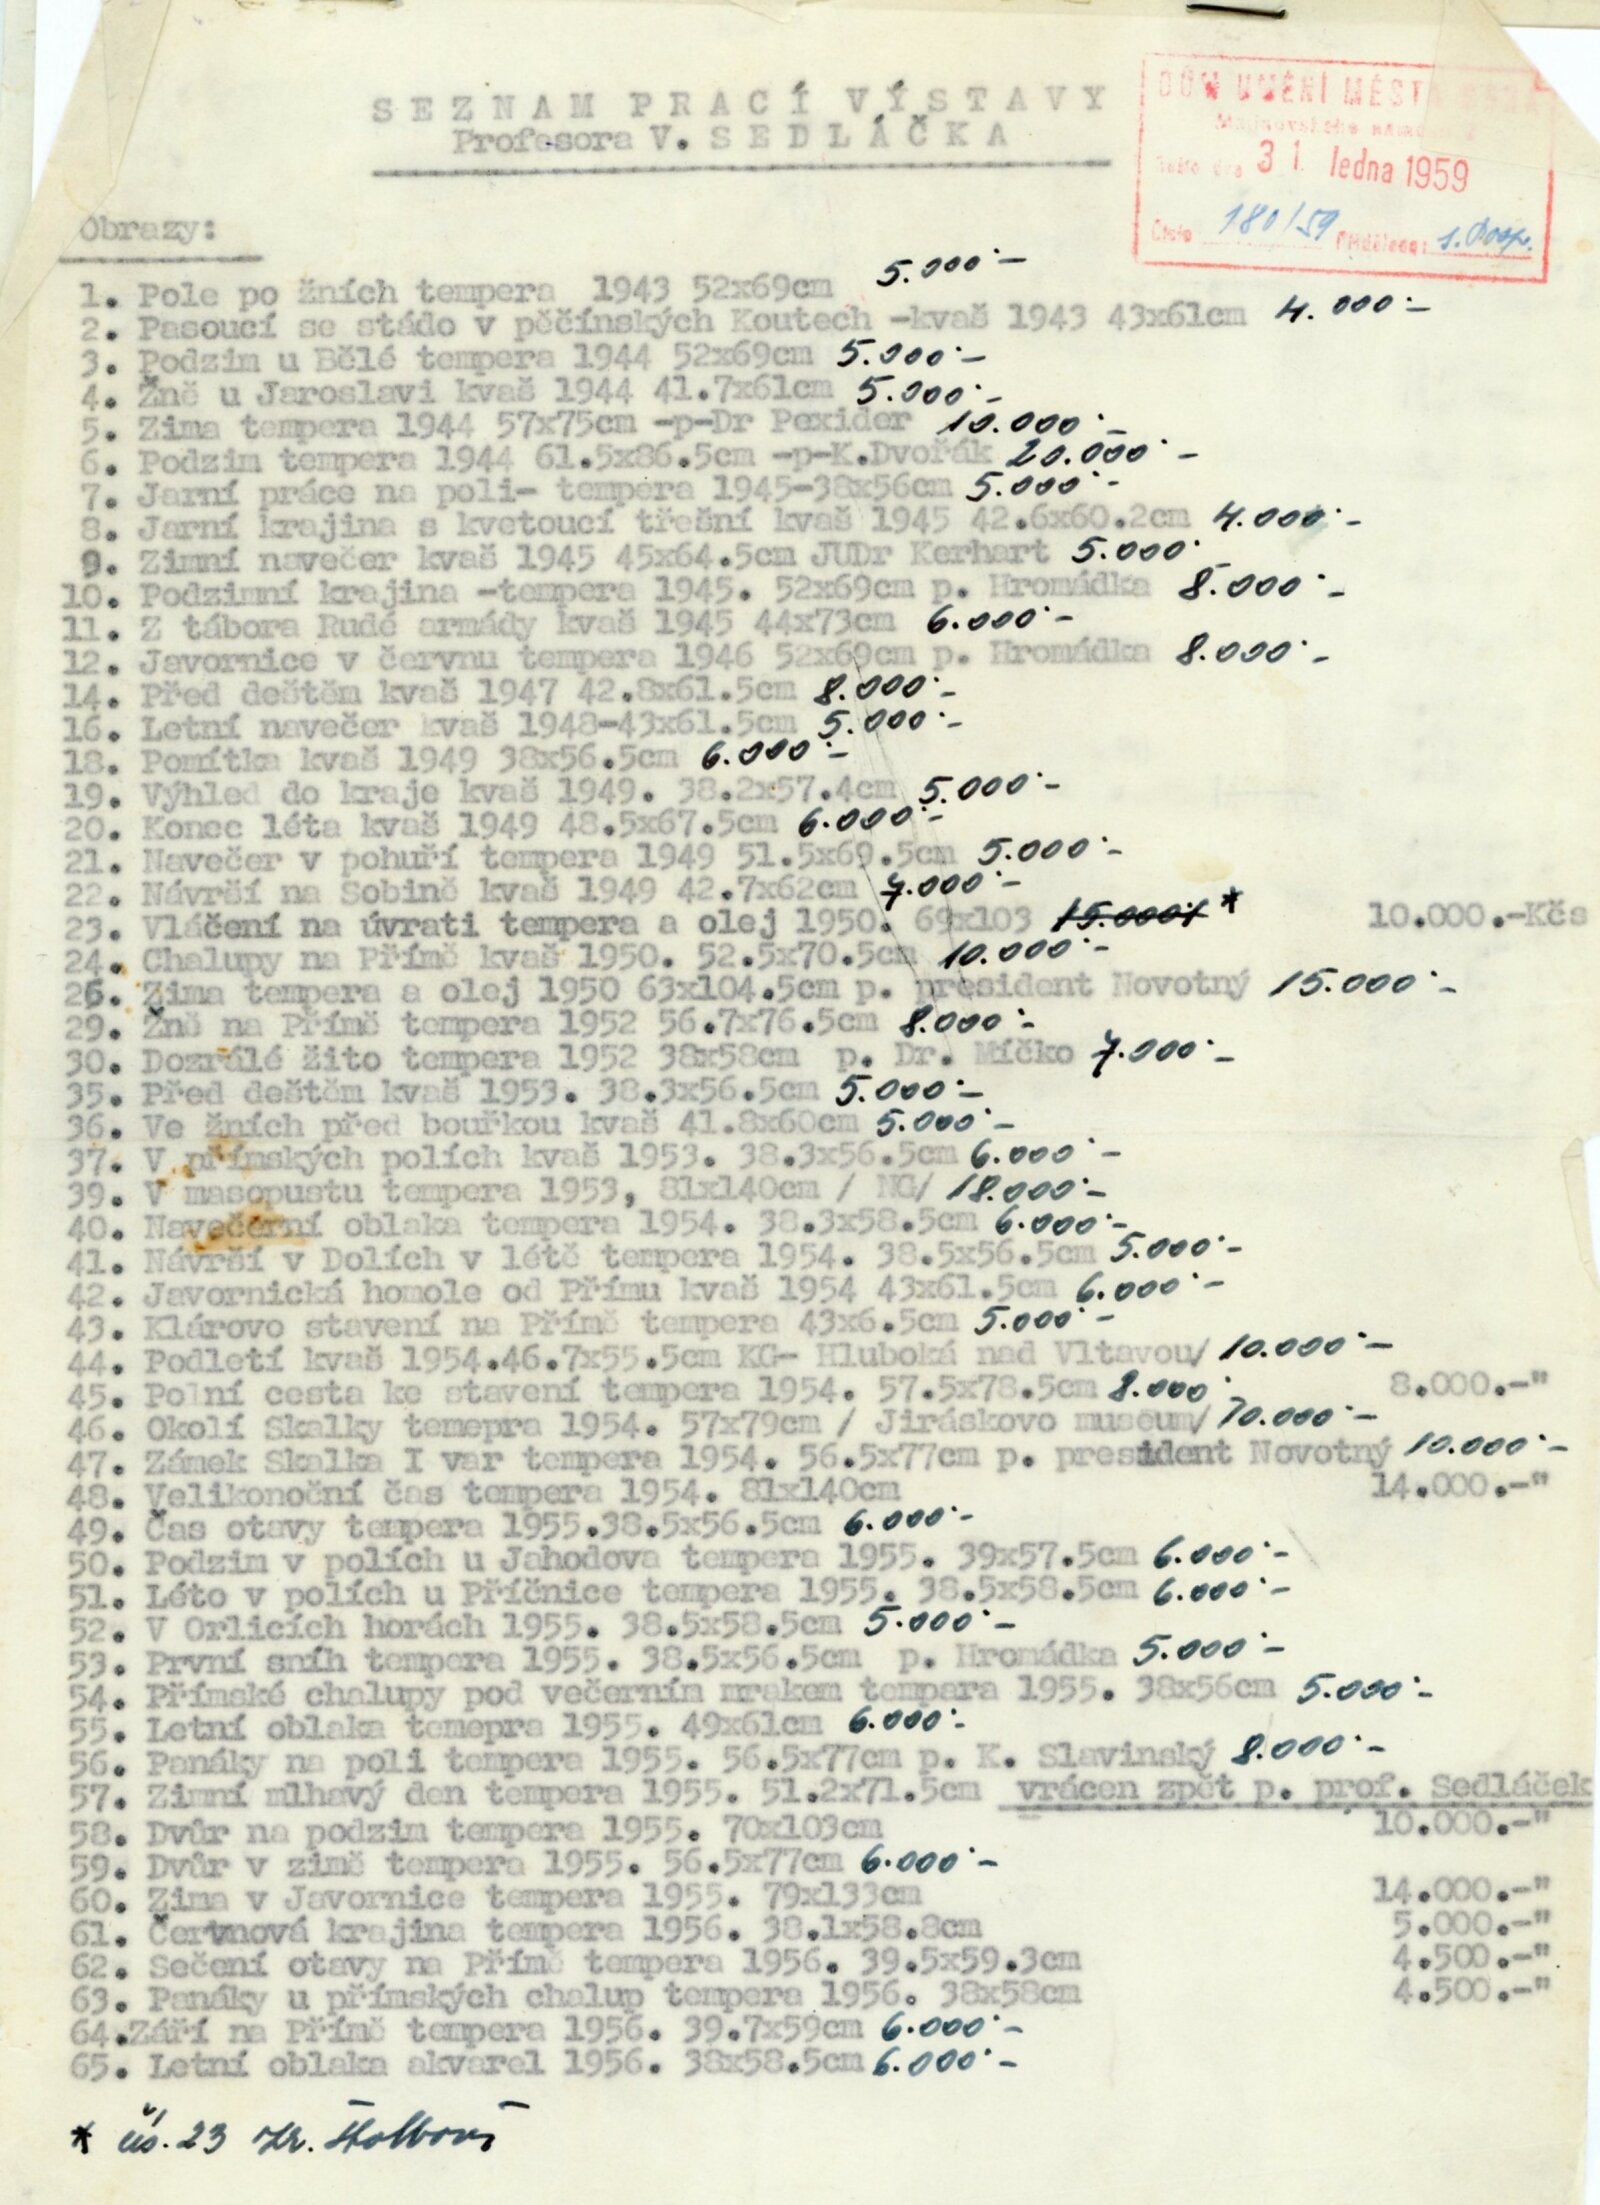 SEZNAM PRACÍ VÝSTAVY
Profesora V. SEDLÁČKA
DŮM UMĚNÍ MĚSTA
Malinovského náměstí 2
Došlo dne 31. ledna 1959
Číslo 180/59 Přiděleno: s. Posp.
Obrazy:
1. Pole po žních tempera 1943 52x69cm 5.000.-
2. Pasoucí se stádo v pěčínských Koutech -kvaš 1943 43x61cm 4.000.-
3. Podzim u Bělé tempera 1944 52x69cm 5.000.-
4. Žně u Jaroslavi kvaš 1944 41.7x61cm 5.000.-
5. Zima tempera 1944 57x75cm -p-Dr Pexider 10.000.-
6. Podzim tempera 1944 61.5x86.5cm -p-K.Dvořák 20.000.-
7. Jarní práce na poli- tempera 1945-38x56cm 5.000.-
8. Jarní krajina s kvetoucí třešní kvaš 1945 42.6x60.2cm 4.000.-
9. Zimní navečer kvaš 1945 45x64.5cm JUDr Kerhart 5.000.-
10. Podzimní krajina -tempera 1945. 52x69cm p. Hromádka 8.000.-
11. Z tábora Rudé armády kvaš 1945 44x73cm 6.000.-
12. Javornice v červnu tempera 1946 52x69cm p. Hromádka 8.000.-
14. Před deštěm kvaš 1947 42.8x61.5cm 8.000.-
16. Letní navečer kvaš 1948-43x61.5cm 5.000.-
18. Pomítka kvaš 1949 38x56.5cm 6.000.-
19. Výhled do kraje kvaš 1949. 38.2x57.4cm 5.000.-
20. Konec léta kvaš 1949 48.5x67.5cm 6.000.-
21. Navečer v pohuří tempera 1949 51.5x69.5cm 5.000.-
22. Návrší na Sobině kvaš 1949 42.7x62cm 7.000.-
23. Vláčení na úvrati tempera a olej 1950. 69x103 15.000.- * 10.000.-Kčs
24. Chalupy na Přímě kvaš 1950. 52.5x70.5cm 10.000.-
26. Zima tempera a olej 1950 63x104.5cm p. president Novotný 15.000.-
29. Žně na Přímě tempera 1952 56.7x76.5cm 8.000.-
30. Dozrálé žito tempera 1952 38x58cm p. Dr. Míčko 7.000.-
35. Před deštěm kvaš 1953. 38.3x56.5cm 5.000.-
36. Ve žních před bouřkou kvaš 41.8x60cm 5.000.-
37. V přímských polích kvaš 1953. 38.3x56.5cm 6.000.-
39. V masopustu tempera 1953, 81x140cm / NG/ 18.000.-
40. Navečerní oblaka tempera 1954. 38.3x58.5cm 6.000.-
41. Návrší v Dolích v létě tempera 1954. 38.5x56.5cm 5.000.-
42. Javornická homole od Přímu kvaš 1954 43x61.5cm 6.000.-
43. Klárovo stavení na Přímě tempera 43x6.5cm 5.000.-
44. Podletí kvaš 1954.46.7x55.5cm KG- Hluboká nad Vltavou/ 10.000.-
45. Polní cesta ke stavení tempera 1954. 57.5x78.5cm 8.000.- 8.000.-"
46. Okolí Skalky temepra 1954. 57x79cm / Jiráskovo museum/ 10.000.-
47. Zámek Skalka I var tempera 1954. 56.5x77cm p. president Novotný 10.000.-
48. Velikonoční čas tempera 1954. 81x140cm 14.000.-"
49. Čas otavy tempera 1955.38.5x56.5cm 6.000.-
50. Podzim v polích u Jahodova tempera 1955. 39x57.5cm 6.000.-
51. Léto v polích u Příčnice tempera 1955. 38.5x58.5cm 6.000.-
52. V Orlicích horách 1955. 38.5x58.5cm 5.000.-
53. První sníh tempera 1955. 38.5x56.5cm p. Hromádka 5.000.-
54. Přímské chalupy pod večerním mrakem tempara 1955. 38x56cm 5.000.-
55. Letní oblaka temepra 1955. 49x61cm 6.000.-
56. Panáky na poli tempera 1955. 56.5x77cm p. K. Slavinský 8.000.-
57. Zimní mlhavý den tempera 1955. 51.2x71.5cm vrácen zpět p. prof. Sedláček
58. Dvůr na podzim tempera 1955. 70x103cm 10.000.-"
59. Dvůr v zimě tempera 1955. 56.5x77cm 6.000.-
60. Zima v Javornice tempera 1955. 79x133cm 14.000.-"
61. Červnová krajina tempera 1956. 38.1x58.8cm 5.000.-"
62. Sečení otavy na Přímě tempera 1956. 39.5x59.3cm 4.500.-"
63. Panáky u přímských chalup tempera 1956. 38x58cm 4.500.-"
64.Září na Přímě tempera 1956. 39.7x59cm 6.000.-
65. Letní oblaka akvarel 1956. 38x58.5cm 6.000.-
* čís. 23